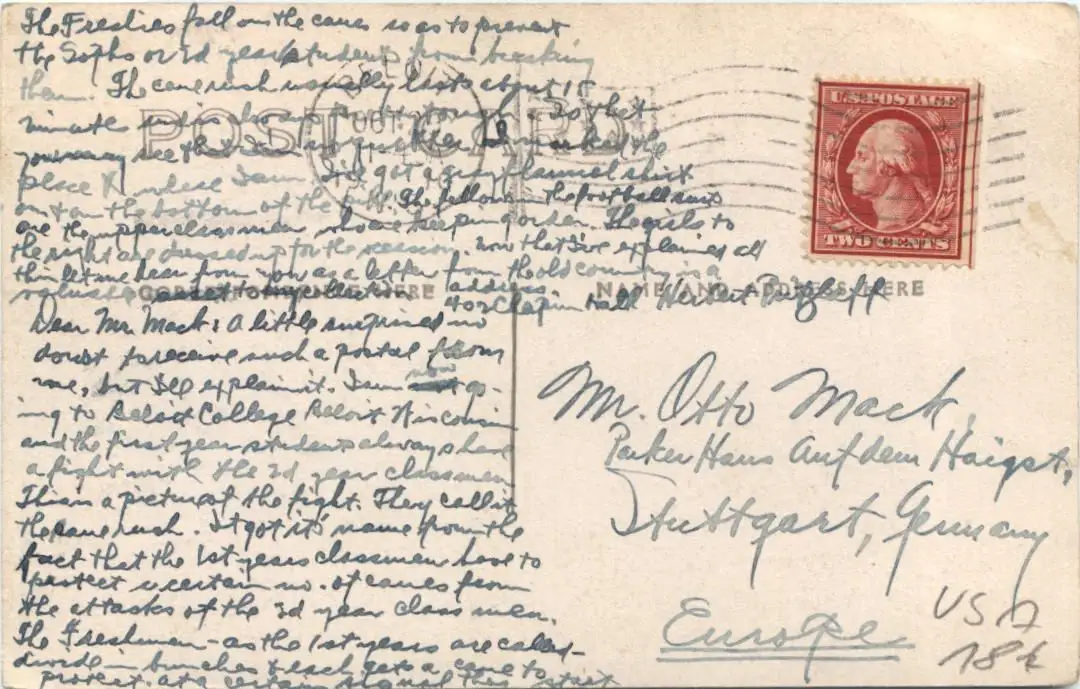 The Freshies fall on the canes so as to prevent
the Sophs or 2d year students from breaking
them. The cane rush usually lasts about 15
minutes and is always pretty tough. So that
you may see the I marked the
place X where I am. I've got a gray flannel shirt
on & on the bottom of the pile. The fellows in the football suits
are the upperclassmen who are keeping order. The girls to
the right are dressed up for the occasion. Now that I've explained all
this let me hear from you as a letter from the old country is a
valuable asset to my collection. address.
402 Chapin Hall Herbert
POST CARD
OCT
CORRESPONDENCE HERE
NAME AND ADDRESS HERE
U.S. POSTAGE
TWO CENTS
Dear Mr. Mack: A little surprised no
doubt to receive such a postal from
me, but I'll explain it. I am now go-
ing to Beloit College Beloit Wisconsin
and the first year students always have
a fight with the 2d year classmen
This is a picture of the fight. They call it
the cane rush. It got it's name from the
fact that the 1st years classmen have to
protect a certain no. of canes from
the attacks of the 2d year class men.
The Freshmen - as the 1st years are called -
divide in bunches & each gets a cane to
protect. At a certain signal they start
Mr. Otto Mack,
Parker Haus Auf dem Haigst,
Stuttgart, Germany
Europe
USA
18k